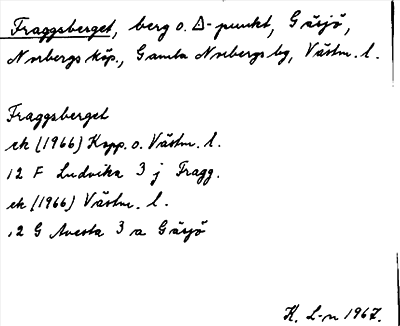 Fraggsberget, berg o. Δ-punkt, Gäsjö,
Norbergs köp., Gamla Norbergs bg, Västm. l.
Fraggsberget
ek (1966) Kopp. o. Västm. l.
12 F Ludvika 3 j Fragg.
ek (1966) Västm. l.
12 G Avesta 3 a Gäsjö
K. L-n 1967.